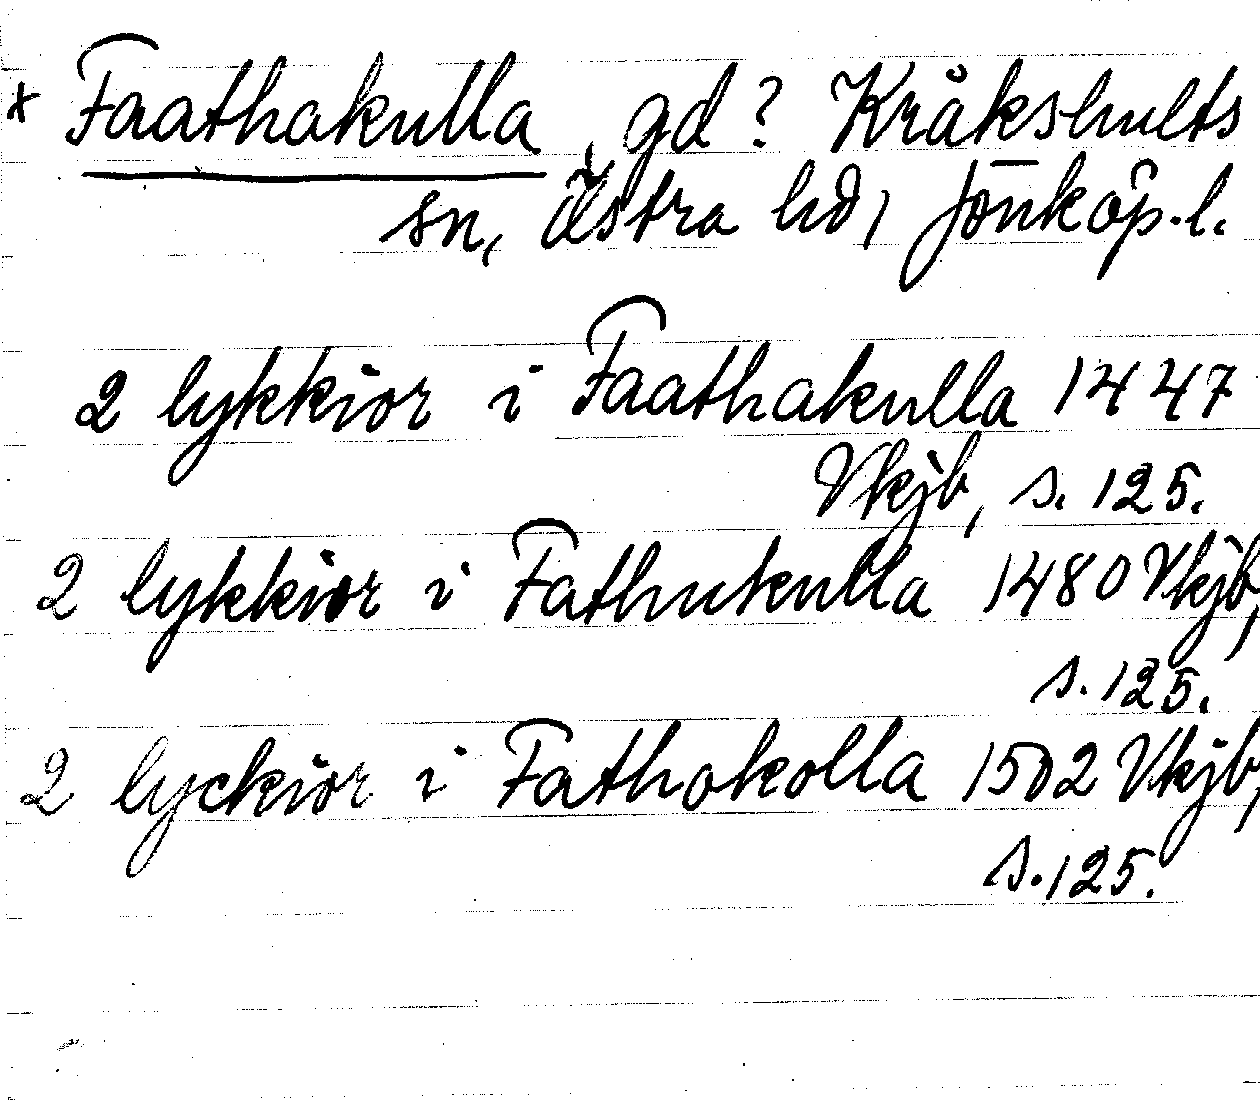 x Faathakulla, gd? Kråkshults
sn, Östra hd, Jönköp. l.
2 lykkior i Faathakulla 1447
Vkjb, s. 125.
2 lykkior i Fathukulla 1480 Vkjb,
s. 125.
2 lyckior i Fathokolla 1502 Vkjb,
s. 125.